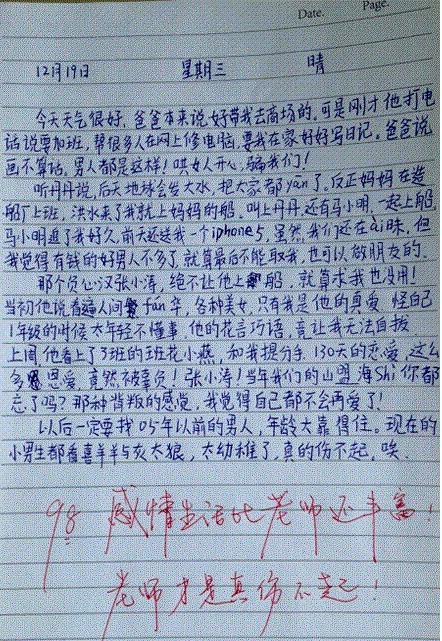 Date. Page.
12月19日 星期三 晴
今天天气很好，爸爸本来说好带我去商场的，可是刚才他打电
话说要加班，帮很多人在网上修电脑，要我在家好好写日记。爸爸说
画不算话，男人都是这样！哄女人开心，骗我们！
听丹丹说，后天地球会发大水，把大家都yān了。反正妈妈在造
船厂上班，洪水来了我就上妈妈的船。叫上丹丹，还有马小明，一起上船，
马小明追了我好久，前天还送我一个iphone5，虽然我们还在ài昧，但
我觉得有钱的好男人不多了，就算最后不能取我，也可以做朋友的。
那个负心汉张小涛，绝不让他上船，就算求我也没用！
当初他说看遍人间fán华，各种美女，只有我是他的真爱，怪自己
1年级的时候太年轻不懂事，他的花言巧语，竟让我无法自拔
上周他看上了3班的班花小燕，和我提分手，130天的恋爱，这么
多恩爱，竟然被辜负！张小涛！当年我们的山盟海Shi你都
忘了吗？那种背叛的感觉，我觉得自己都不会再爱了！
以后一定要找05年以前的男人，年龄大靠得住。现在的
小男生都看喜羊羊与灰太狼，太幼稚了，真的伤不起，唉．
98 感情生活比老师还丰富！
老师才是真伤不起！